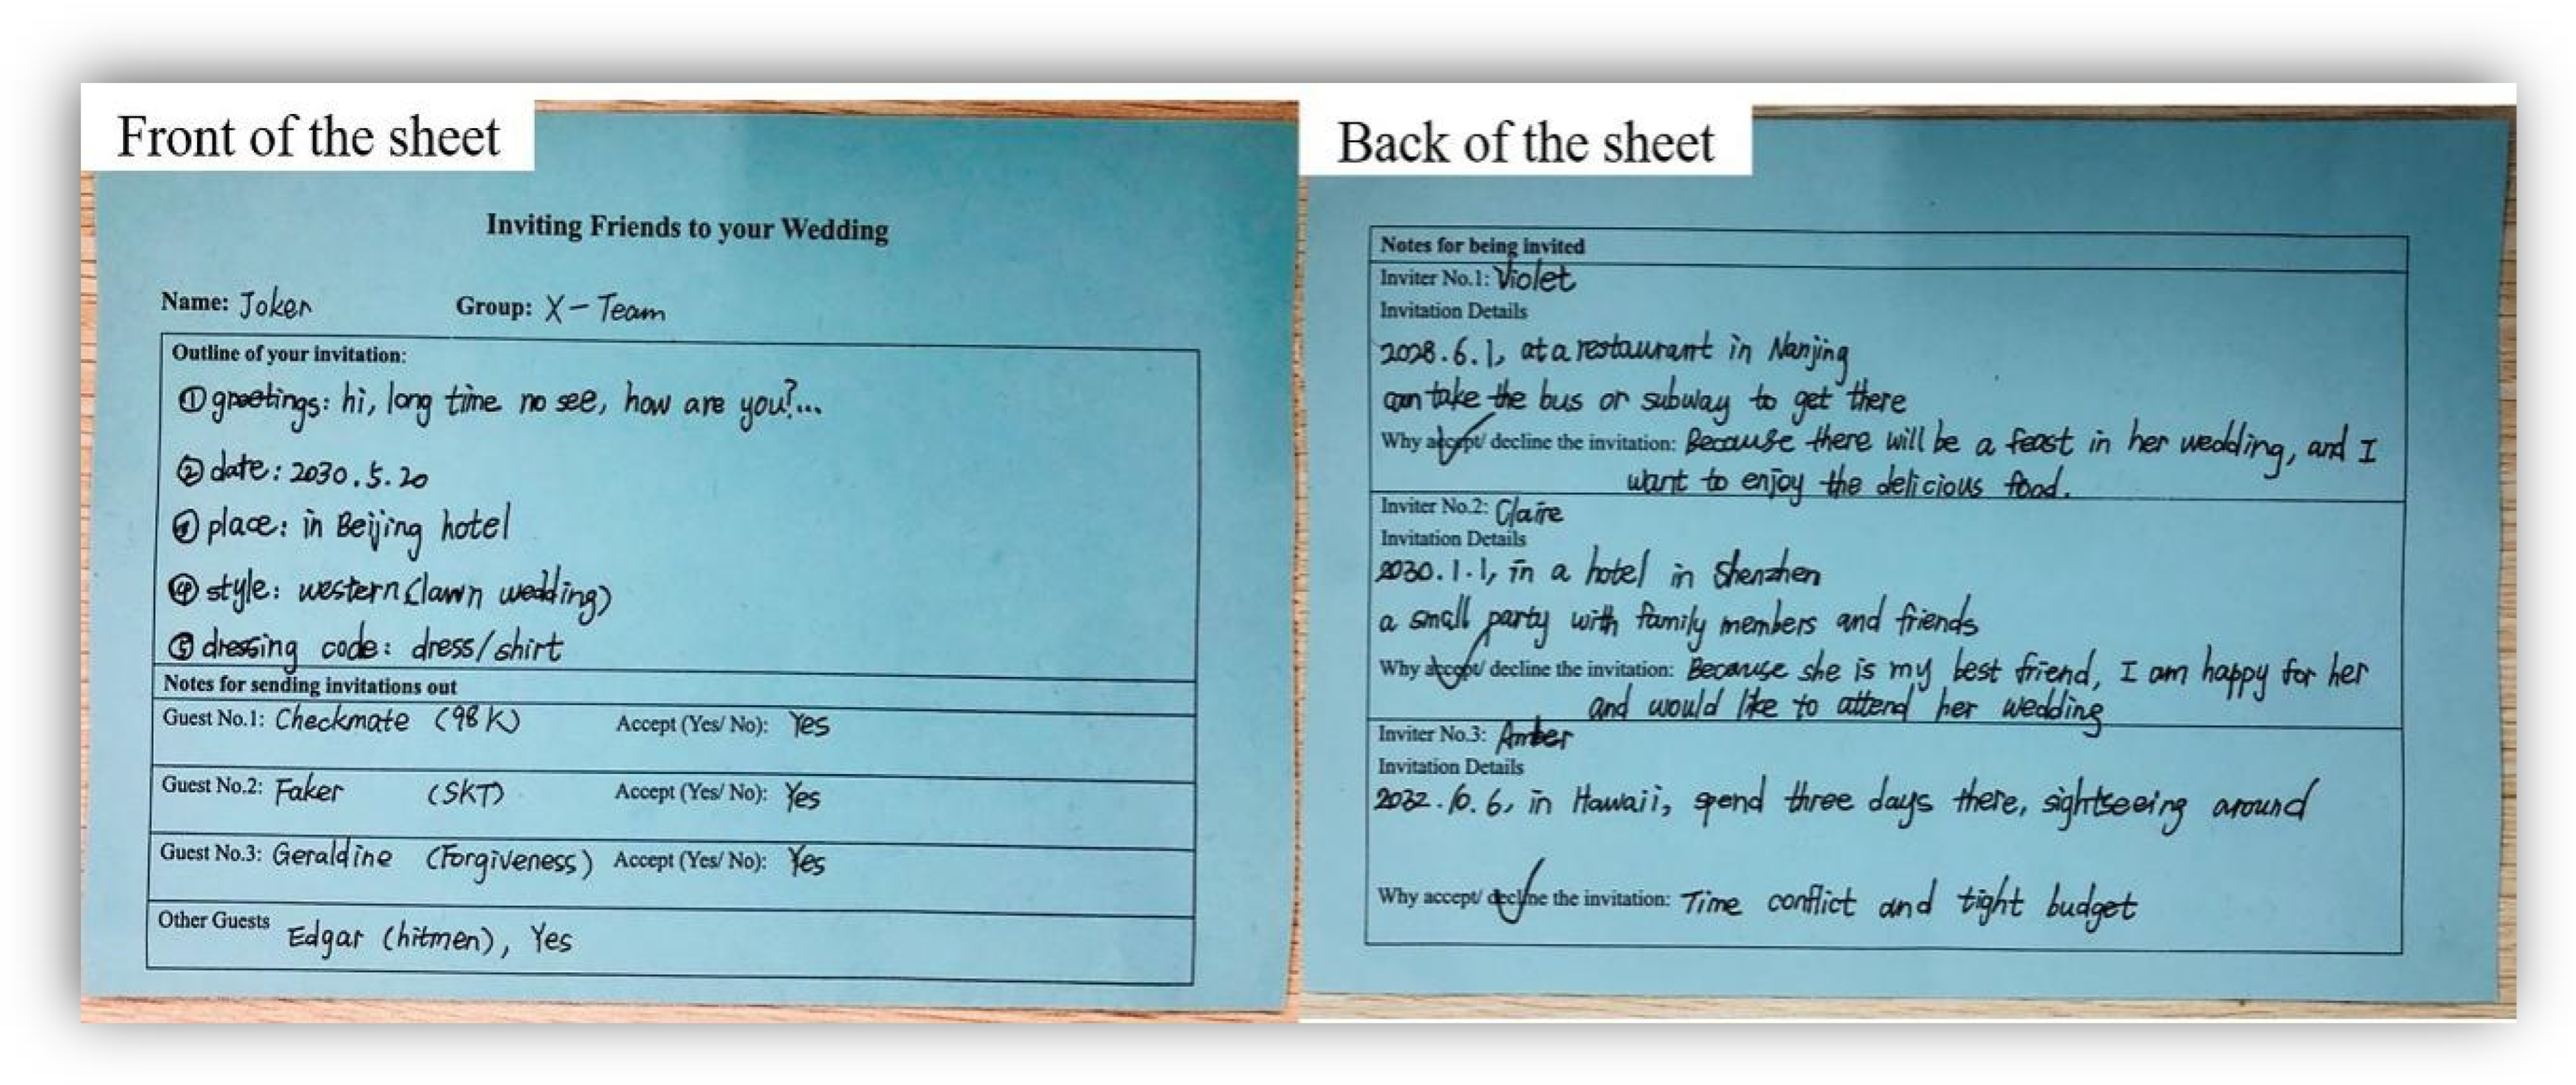 Front of the sheet
Inviting Friends to your Wedding
Name: Joker Group: X-Team
Outline of your invitation:
① greetings: hi, long time no see, how are you?...
② date: 2030.5.20
③ place: in Beijing hotel
④ style: western (lawn wedding)
⑤ dressing code: dress/shirt
Notes for sending invitations out
Guest No.1: Checkmate (98K) Accept (Yes/ No): Yes
Guest No.2: Faker (SKT) Accept (Yes/ No): Yes
Guest No.3: Geraldine (Forgiveness) Accept (Yes/ No): Yes
Other Guests Edgar (hitmen), Yes
Back of the sheet
Notes for being invited
Inviter No.1: Violet
Invitation Details
2028.6.1, at a restaurant in Nanjing
can take the bus or subway to get there
Why accept/ decline the invitation: Because there will be a feast in her wedding, and I
want to enjoy the delicious food.
Inviter No.2: Claire
Invitation Details
2030.1.1, in a hotel in Shenzhen
a small party with family members and friends
Why accept/ decline the invitation: Because she is my best friend, I am happy for her
and would like to attend her wedding
Inviter No.3: Amber
Invitation Details
2032.10.6, in Hawaii, spend three days there, sightseeing around
Why accept/ decline the invitation: Time conflict and tight budget